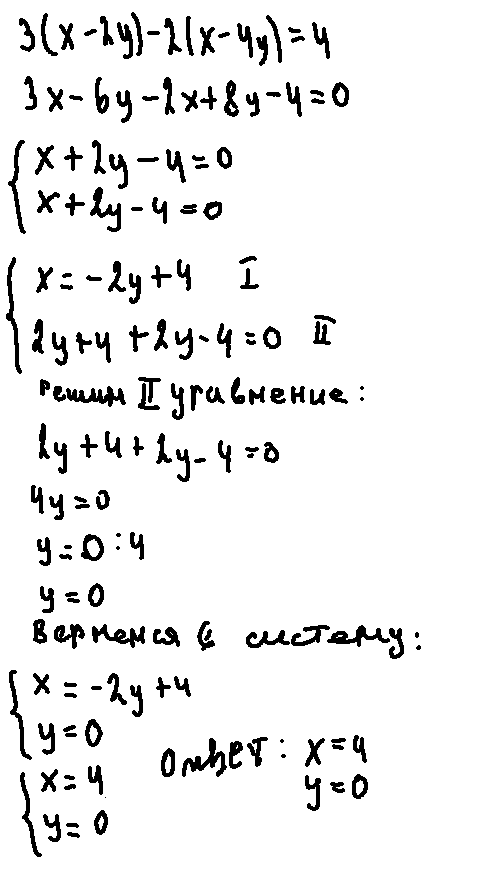 3(x-2y)-2(x-4y)=4
3x-6y-2x+8y-4=0
x+2y-4=0
x+2y-4=0
x=-2y+4 I
2y+4+2y-4=0 II
решим II уравнение:
2y+4+2y-4=0
4y=0
y=0:4
y=0
вернемся в систему:
x=-2y+4
y=0
x=4
y=0
ответ: x=4
y=0